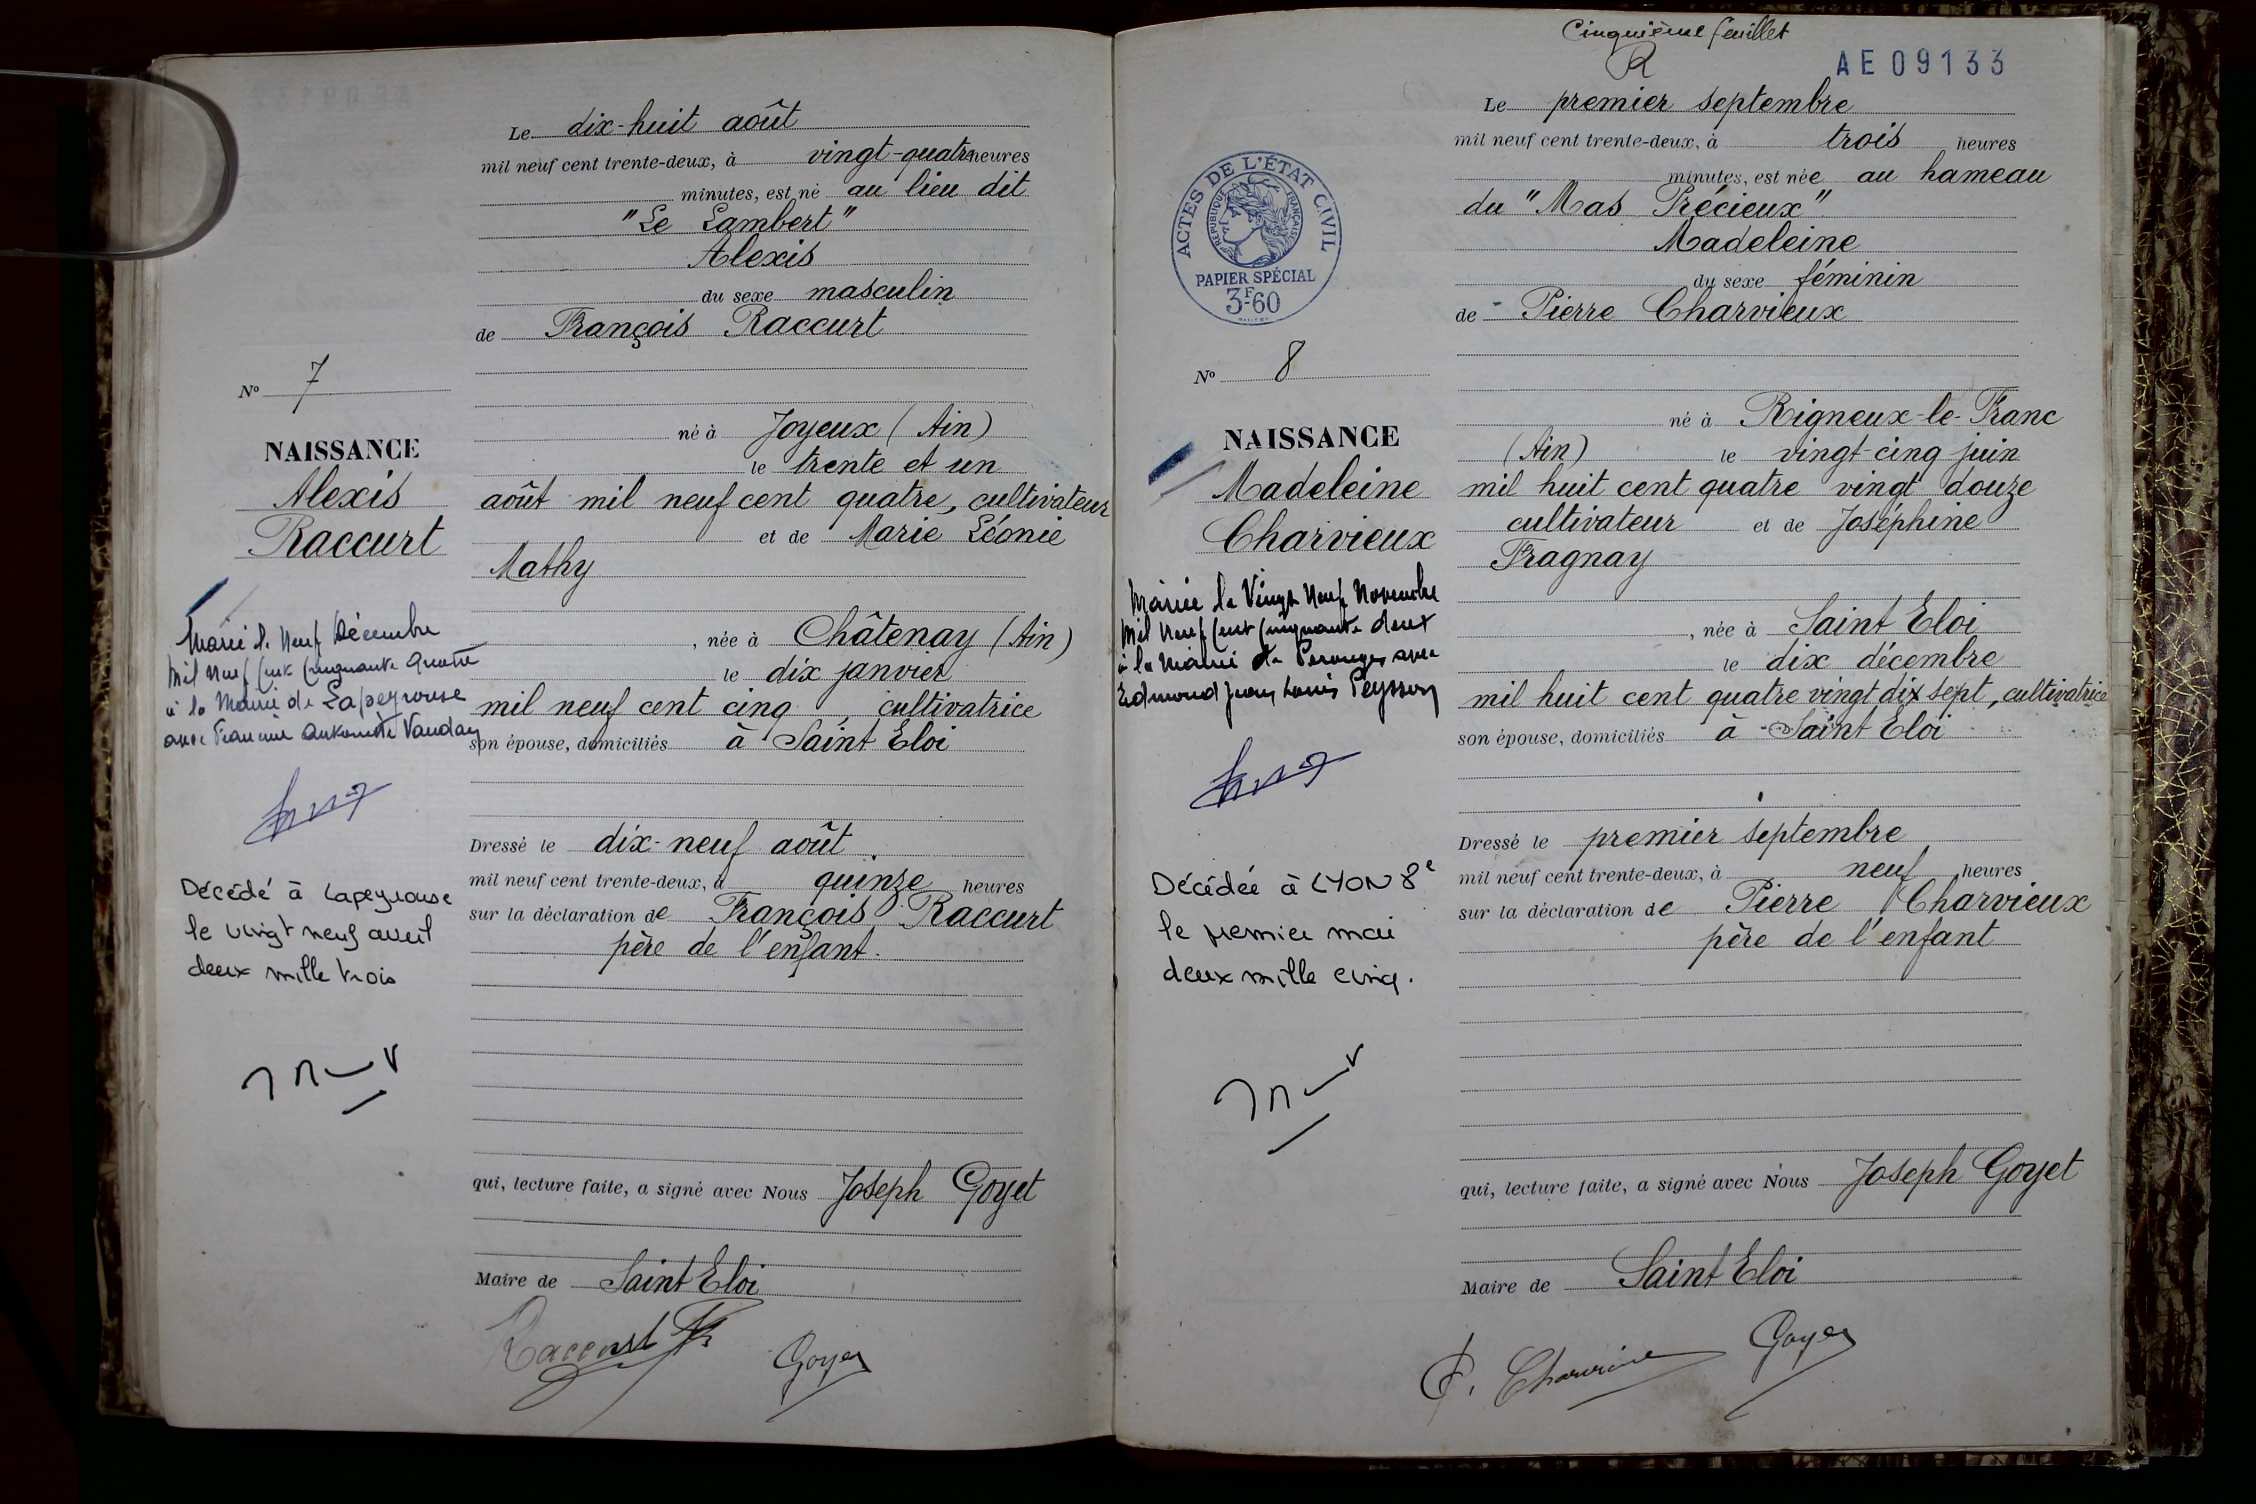 Le dix-huit août
mil neuf cent trente-deux, à vingt-quatre heures
minutes, est né au lieu dit
"Le Lambert"
Alexis
du sexe masculin
de François Raccurt
né à Joyeux (Ain)
le trente et un
août mil neuf cent quatre, cultivateur
et de Marie Léonie
Mathy
, née à Châtenay (Ain)
le dix janvier
mil neuf cent cinq, cultivatrice
son épouse, domiciliés à Saint Eloi
Dressé le dix-neuf août.
mil neuf cent trente-deux, à quinze heures
sur la déclaration de François Raccurt
père de l'enfant.
qui, lecture faite, a signé avec Nous Joseph Goyet
Maire de Saint Eloi
Raccurt
Goyet
Nº 7
NAISSANCE
Alexis
Raccurt
Marié le Neuf Décembre
Mil Neuf Cent Cinquante Quatre
à la Mairie de Lapeyrouse
avec Francine Antoinette Vauday
Décédé à Lapeyrouse
le vingt neuf avril
deux mille trois
Cinquième feuillet
R
AE 09133
ACTES DE L'ÉTAT CIVIL
RÉPUBLIQUE FRANÇAISE
PAPIER SPÉCIAL
3F60
Nº 8
NAISSANCE
Madeleine
Charvieux
Mariée le Vingt Neuf Novembre
Mil Neuf Cent Cinquante deux
à la Mairie de Perouges avec
Edmond Jean Louis Peysson
Décédée à LYON 8e
le premier mai
deux mille cinq.
Le premier septembre
mil neuf cent trente-deux, à trois heures
minutes, est née au hameau
du "Mas Précieux"
Madeleine
du sexe féminin
de - Pierre Charvieux
né à Rigneux-le-Franc
(Ain) le vingt-cinq juin
mil huit cent quatre vingt douze
cultivateur et de Joséphine
Fragnay
, née à Saint Eloi
le dix décembre
mil huit cent quatre vingt dix sept, cultivatrice
son épouse, domiciliés à Saint Eloi
Dressé le premier septembre
mil neuf cent trente-deux, à neuf heures
sur la déclaration de Pierre Charvieux
père de l'enfant
qui, lecture faite, a signé avec Nous Joseph Goyet
Maire de Saint Eloi
P. Charvieux
Goyet